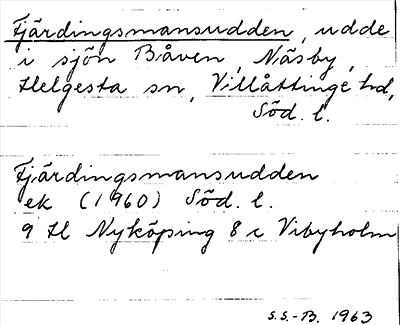 Fjärdingsmansudden, udde
i sjön Båven, Näsby,
Helgesta sn, Villåttinge hd,
Söd. l.
Fjärdingsmansudden
ek (1960) Söd. l.
9 H Nyköping 8 c Vibyholm
S.S.-B. 1963